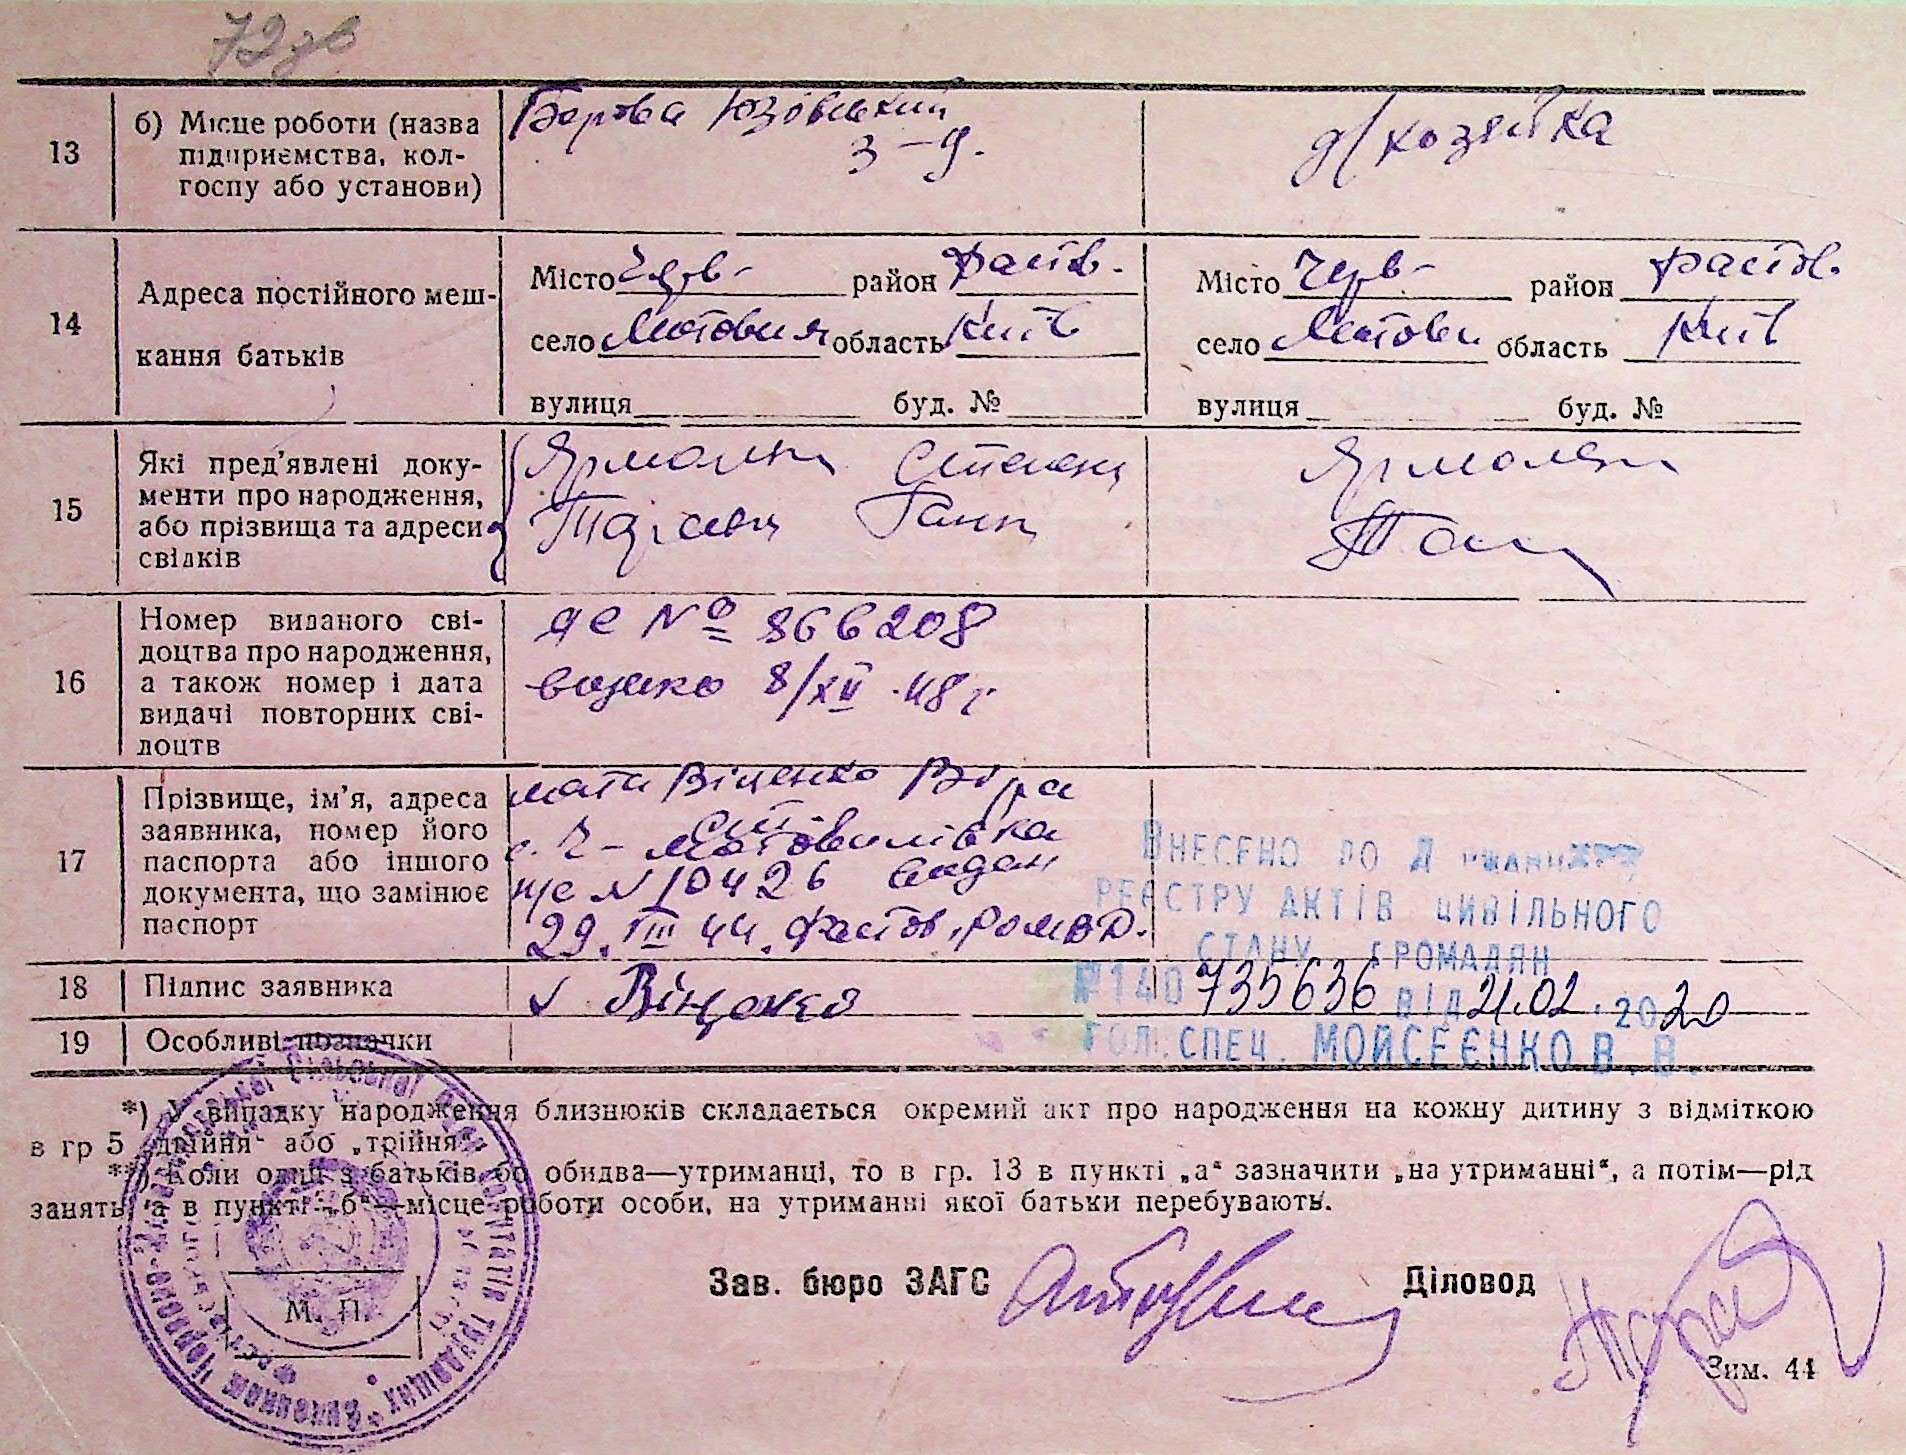 72 зв
13 б) Місце роботи (назва підприємства, колгоспу або установи)
3-д.
д/хозяйка
14 Адреса постійного мешкання батьків
Місто Черв- район Фастів.
село Мотовил область Київ
вулиця буд. №
Місто Черв- район Фастов.
село Мотови область Київ
вулиця буд. №
15 Які пред'явлені документи про народження, або прізвища та адреси свідків
Степан
Ганн
16 Номер виданого свідоцтва про народження, а також номер і дата видачі повторних свідоцтв
ЯС № 866208
8/XII 48 г
17 Прізвище, ім'я, адреса заявника, номер його паспорта або іншого документа, що замінює паспорт
мати Віценко Віра
с. Ч- Мотовилівка
№ 10426 видан
29. III 44. Фастов. РОМВД.
ВНЕСЕНО ДО
РЕЄСТРУ АКТІВ ЦИВІЛЬНОГО
СТАНУ ГРОМАДЯН
18 Підпис заявника
№140 735636 ВІД 21.02.2020
19 Особливі позначки
ГОЛ. СПЕЦ. МОЙСЕЄНКО В. В.
*) У випадку народження близнюків складається окремий акт про народження на кожну дитину з відміткою
в гр 5 „двійня“ або „трійня“.
**) Коли один з батьків, бо обидва—утриманці, то в гр. 13 в пункті „а“ зазначити „на утриманні“, а потім—рід
занять, а в пункті „б“—місце роботи особи, на утриманні якої батьки перебувають.
Зав. бюро ЗАГС Діловод
М. П.
Зим. 44